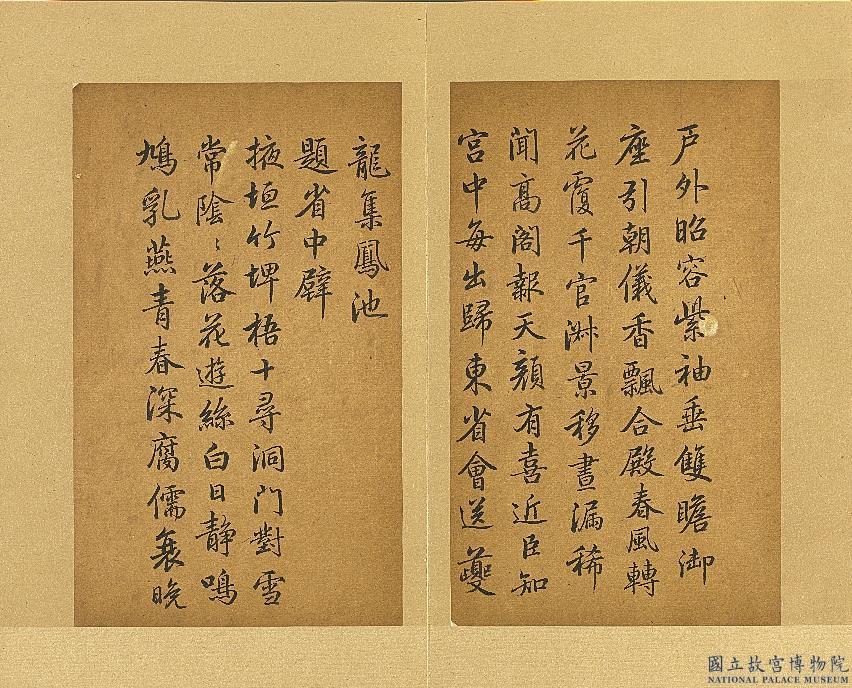 戶外昭容紫袖垂雙瞻御
座引朝儀香飄合殿春風轉
花覆千官淑景移晝漏稀
聞高閣報天顏有喜近臣知
宮中每出歸東省會送夔
龍集鳳池
題省中壁
掖垣竹埤梧十尋洞門對雪
常陰〻落花遊絲白日靜鳴
鳩乳燕青春深腐儒衰晚
國立故宮博物院
NATIONAL PALACE MUSEUM